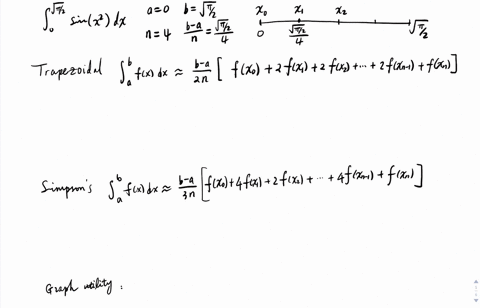 ∫₀^√(π/2) sin(x²) dx   a=0   b=√(π/2)   x₀   x₁   x₂
n=4   (b-a)/n = √(π/2)/4   0   √(π/2)/4   √(π/2)
Trapezoidal ∫ₐᵇ f(x) dx ≈ (b-a)/2n [ f(x₀) + 2f(x₁) + 2f(x₂) + ⋯ + 2f(xₙ₋₁) + f(xₙ) ]
Simpson's ∫ₐᵇ f(x) dx ≈ (b-a)/3n [ f(x₀) + 4f(x₁) + 2f(x₂) + ⋯ + 4f(xₙ₋₁) + f(xₙ) ]
Graph utility :